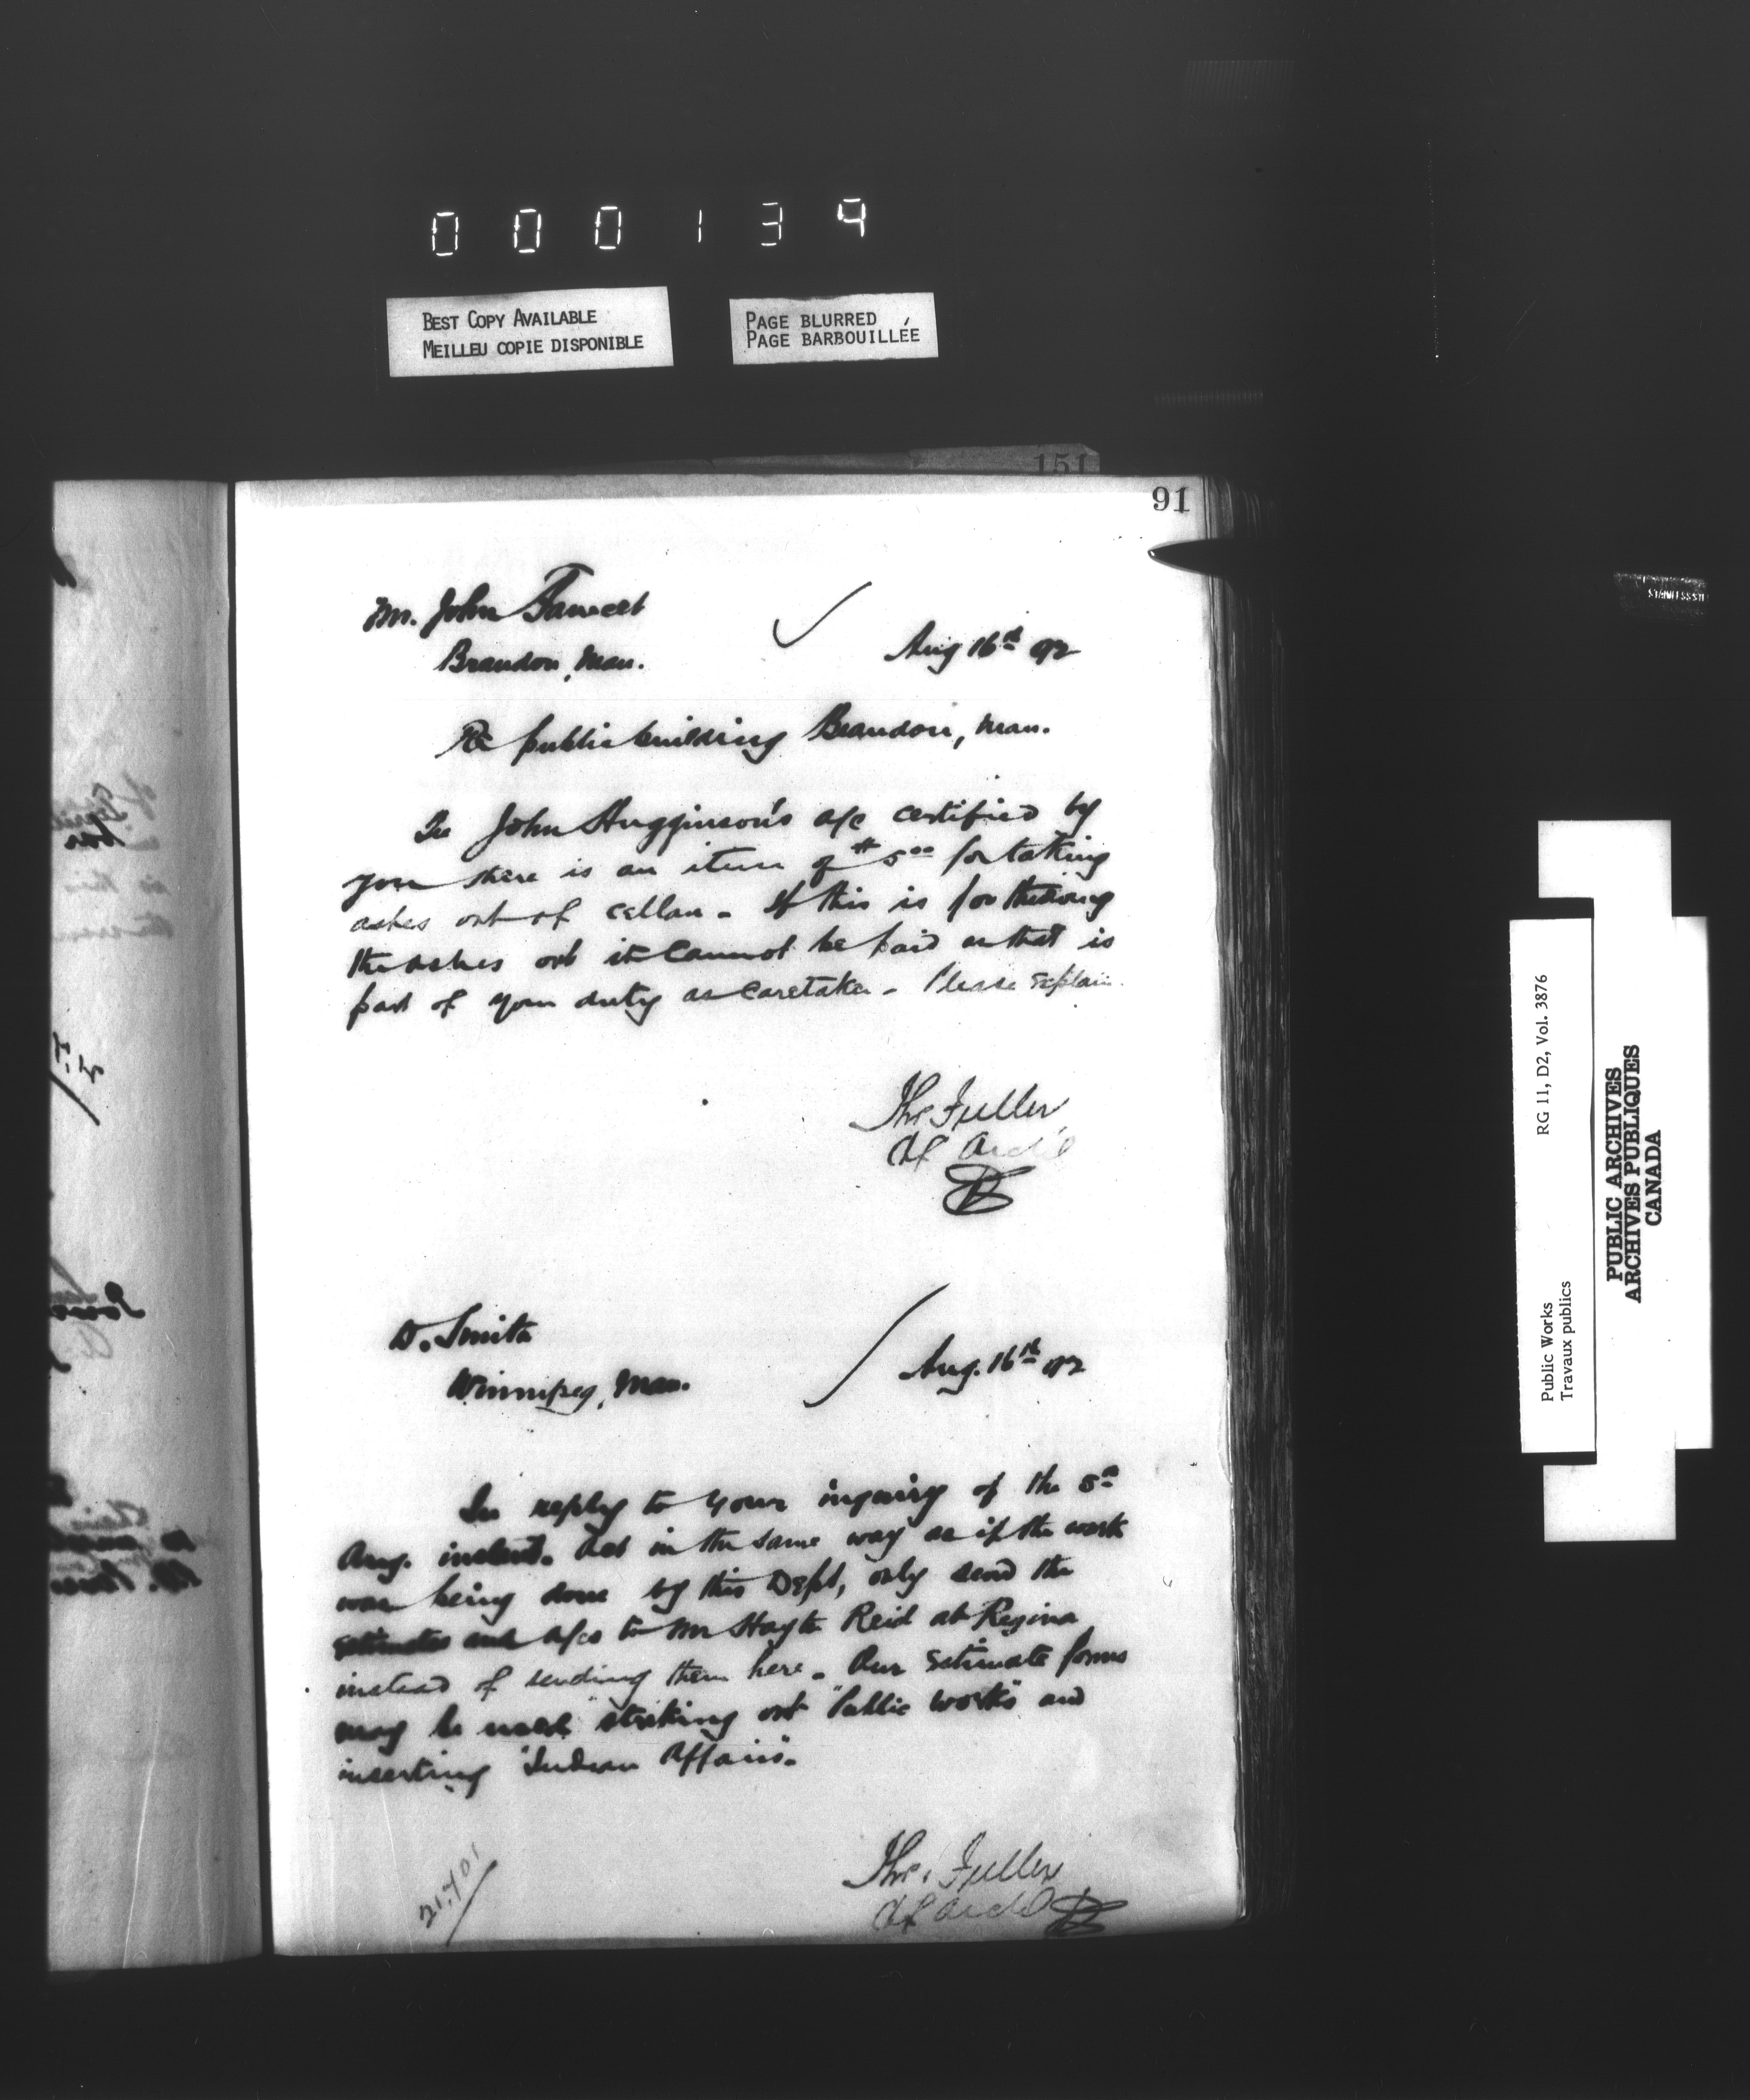 000139
BEST COPY AVAILABLE
MEILLEU COPIE DISPONIBLE
PAGE BLURRED
PAGE BARBOUILLÉE
151
91
Mr. John Fawcett
Brandon, Man.
Aug 16th 92
Re public building Brandon, Man.
In John Hugginson's a/c certified by
you there is an item of $5.00 for taking
ashes out of cellar - If this is for
the ashes out it cannot be paid as that is
part of your duty as Caretaker - Please Explain
Thos Fuller
Ch Archt
D. Smith
Winnipeg, Man.
Aug. 16th 92
In reply to your inquiry of the 5th
Aug. Act in the same way as if the work
was being done by this Dept, only send the
Estimates and a/cs to Mr Hayter Reid at Regina
instead of sending them here - Our Estimate forms
may be used striking out "Public Works" and
inserting "Indian Affairs".
Thos. Fuller
Ch Archt
Public Works
Travaux publics
RG 11, D2, Vol. 3876
PUBLIC ARCHIVES
ARCHIVES PUBLIQUES
CANADA